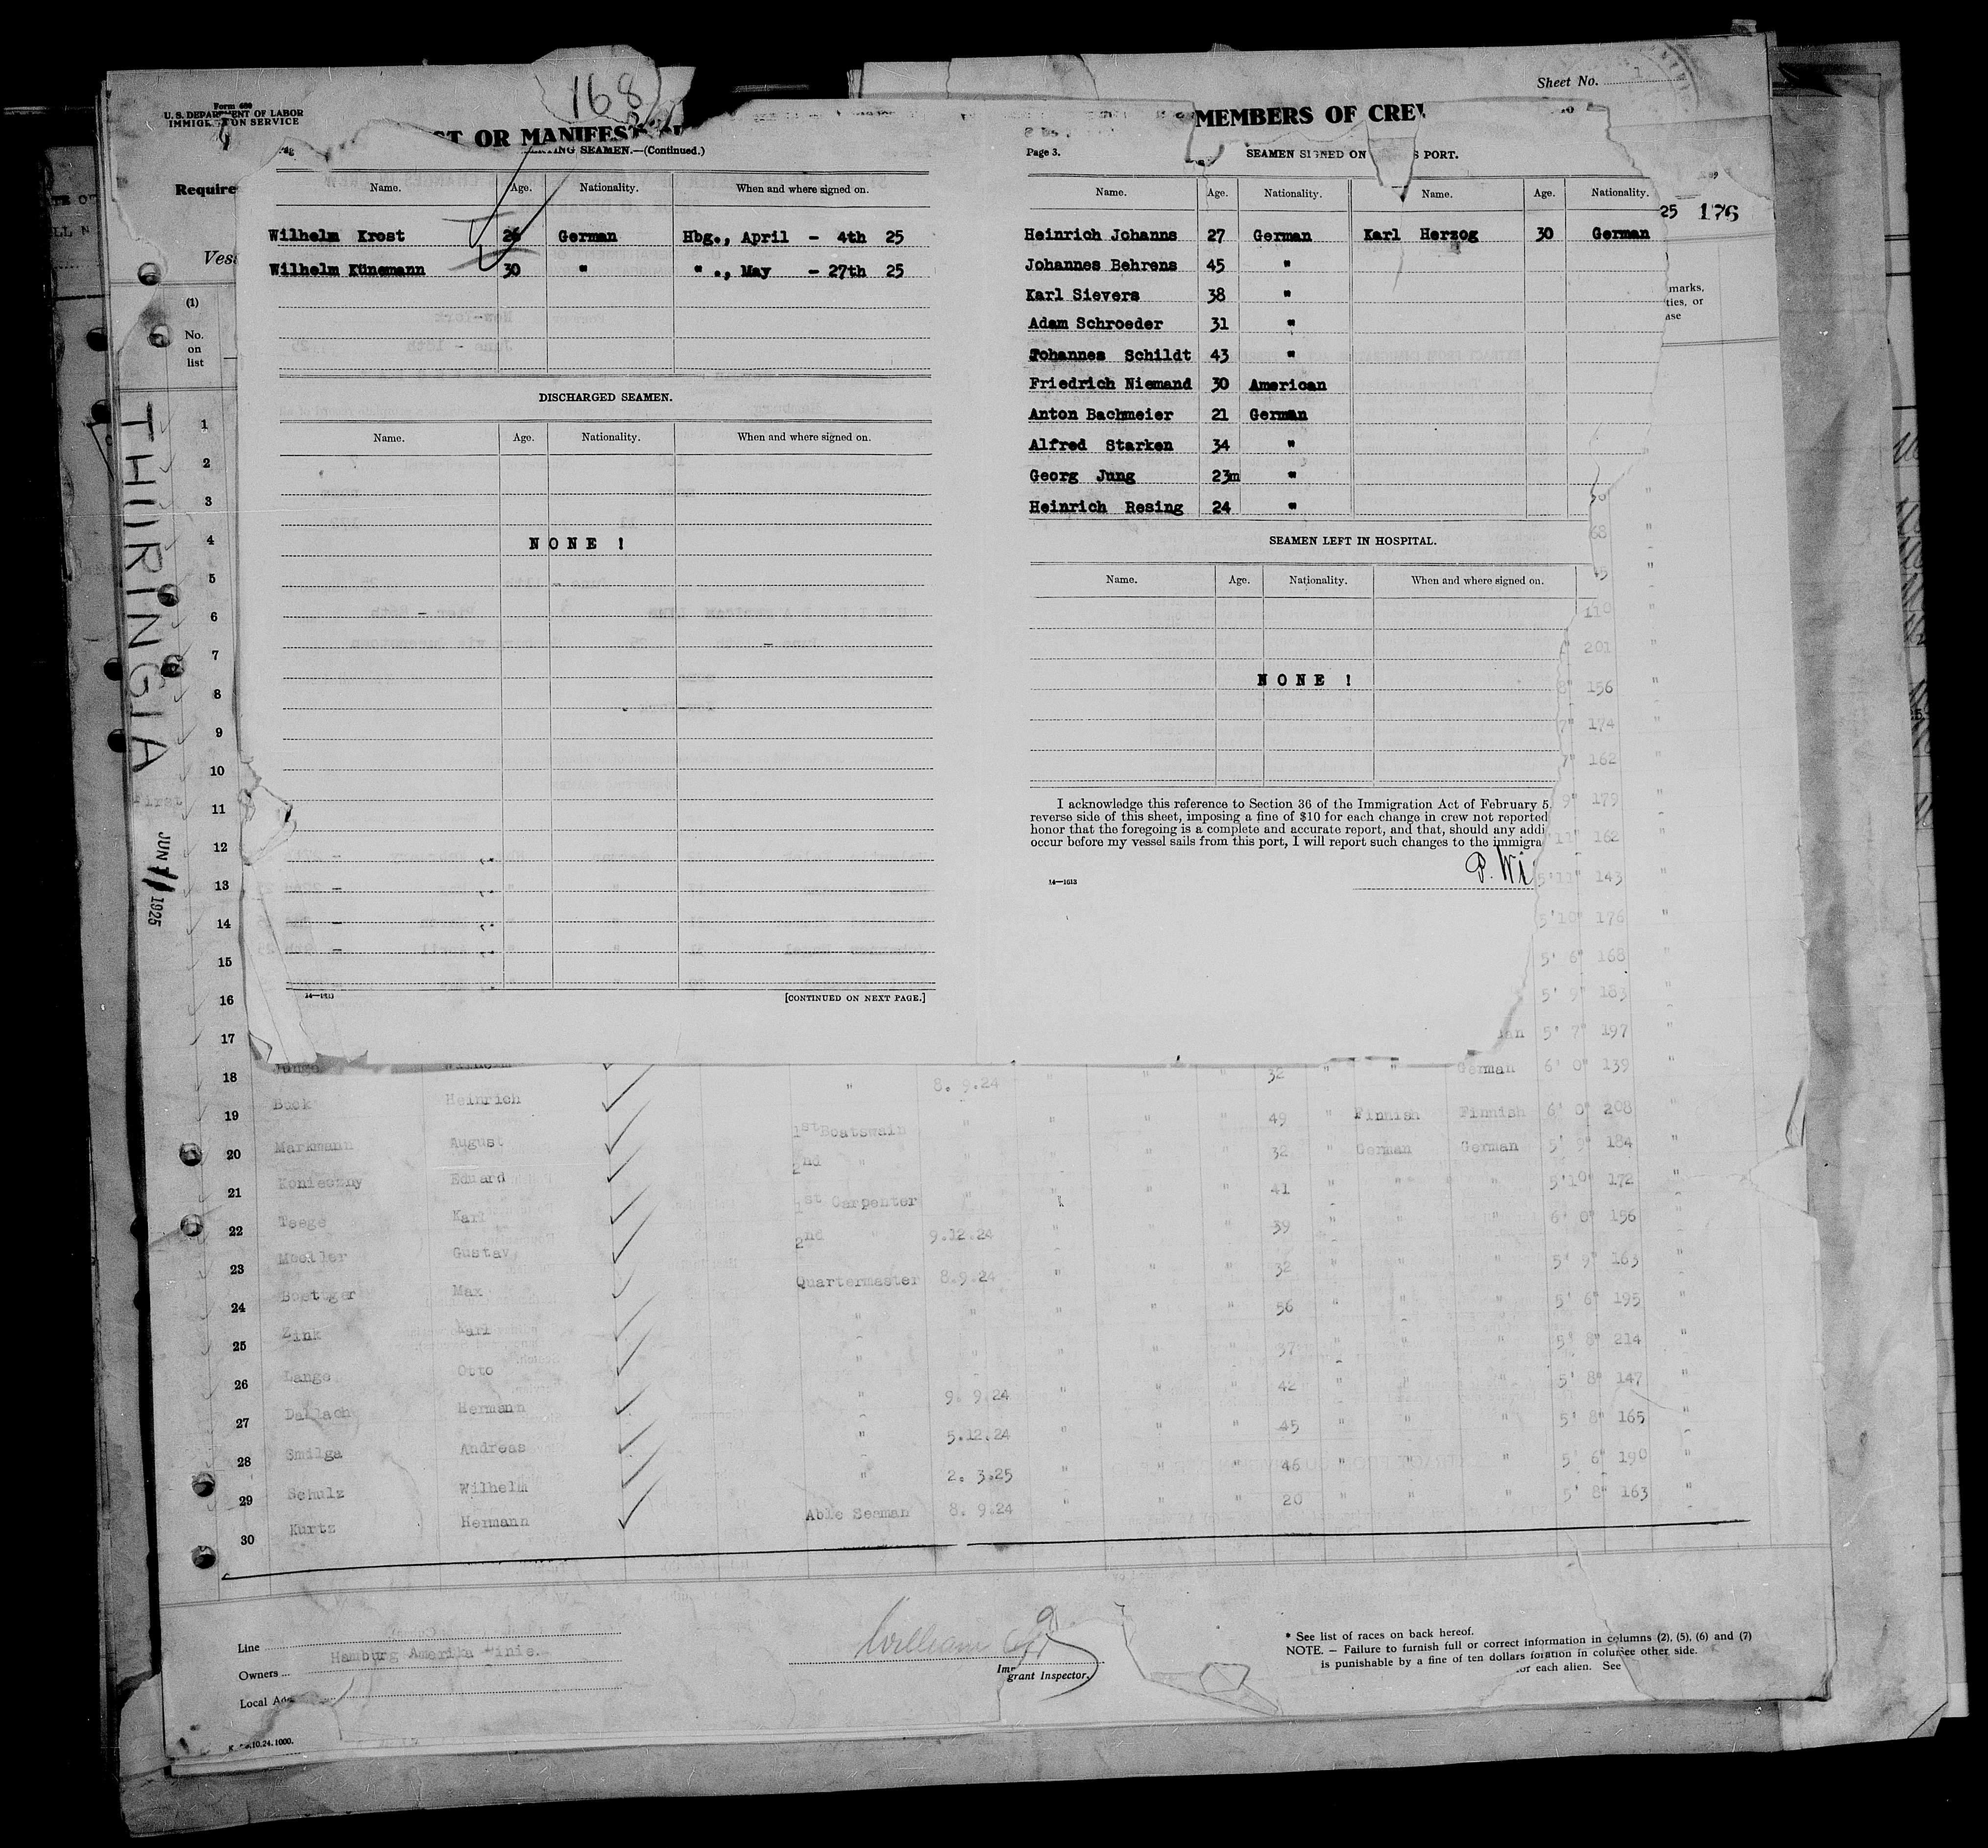 Sheet No.
168
Form 689
U. S. DEPARTMENT OF LABOR
IMMIGRATION SERVICE
ST OR MANIFEST
MEMBERS OF CREW
SEAMEN.—(Continued.)
Require
Vess
(1)
No.
on
list
Name. Age. Nationality. When and where signed on.
Wilhelm Krost 26 German Hbg., April - 4th 25
Wilhelm Künemann 30 " " ., May - 27th 25
DISCHARGED SEAMEN.
Name. Age. Nationality. When and where signed on.
NONE !
14—1613
[CONTINUED ON NEXT PAGE.]
Page 3.
SEAMEN SIGNED ON S PORT.
Name. Age. Nationality. Name. Age. Nationality.
Heinrich Johanns 27 German Karl Herzog 30 German
Johannes Behrens 45 "
Karl Sievers 38 "
Adam Schroeder 31 "
Johannes Schildt 43 "
Friedrich Niemand 30 American
Anton Bachmeier 21 German
Alfred Starken 34 "
Georg Jung 23m "
Heinrich Resing 24 "
SEAMEN LEFT IN HOSPITAL.
Name. Age. Nationality. When and where signed on.
NONE !
I acknowledge this reference to Section 36 of the Immigration Act of February 5
reverse side of this sheet, imposing a fine of $10 for each change in crew not reported
honor that the foregoing is a complete and accurate report, and that, should any addi
occur before my vessel sails from this port, I will report such changes to the immigra
P. Wi
14—1613
25 176
marks,
ties, or
ase
THURINGIA
First
JUN 1925
1
2
3
4
5
6
7
8
9
10
11
12
13
14
15
16
17
18
19
20
21
22
23
24
25
26
27
28
29
30
68 "
110 "
201 "
156 "
174 "
162 "
9" 179 "
11" 162 "
5'11" 143 "
5'10" 176 "
5' 6" 168 "
5' 9" 183 "
5' 7" 197 "
Wilhelm 32 " " German 6' 0" 139 "
Bock Heinrich " 8. 9.24 " " " 49 " Finnish Finnish 6' 0" 208 "
Markmann August 1st Boatswain " " " " 32 " German German 5' 9" 184 "
Konieczny Eduard 2nd " " " " " 41 " " " 5'10" 172 "
Teege Karl 1st Carpenter " " " 39 " " 6' 0" 156 "
Moeller Gustav 2nd " 9.12.24 " " " 32 " " " 5' 9" 163 "
Boettger Max Quartermaster 8.9.24 " " " 56 " " " 5' 6" 195 "
Zink Karl " " " " " 37 " " " 5' 8" 214 "
Lange Otto " " " " 42 " " " 5' 8" 147 "
Dallach Hermann " 9. 9.24 " " " 45 " " " 5' 8" 165 "
Smilga Andreas " 5.12.24 " " " 46 " " " 5' 6" 190 "
Schulz Wilhelm " 2. 3.25 " " " 20 " " " 5' 8" 163 "
Kurtz Hermann Able Seaman 8. 9.24
Line
Owners Hamburg Amerika Linie.
Local Ad
10.24.1000.
William
grant Inspector.
* See list of races on back hereof.
NOTE. — Failure to furnish full or correct information in columns (2), (5), (6) and (7)
is punishable by a fine of ten dollars for each alien. See
other side.